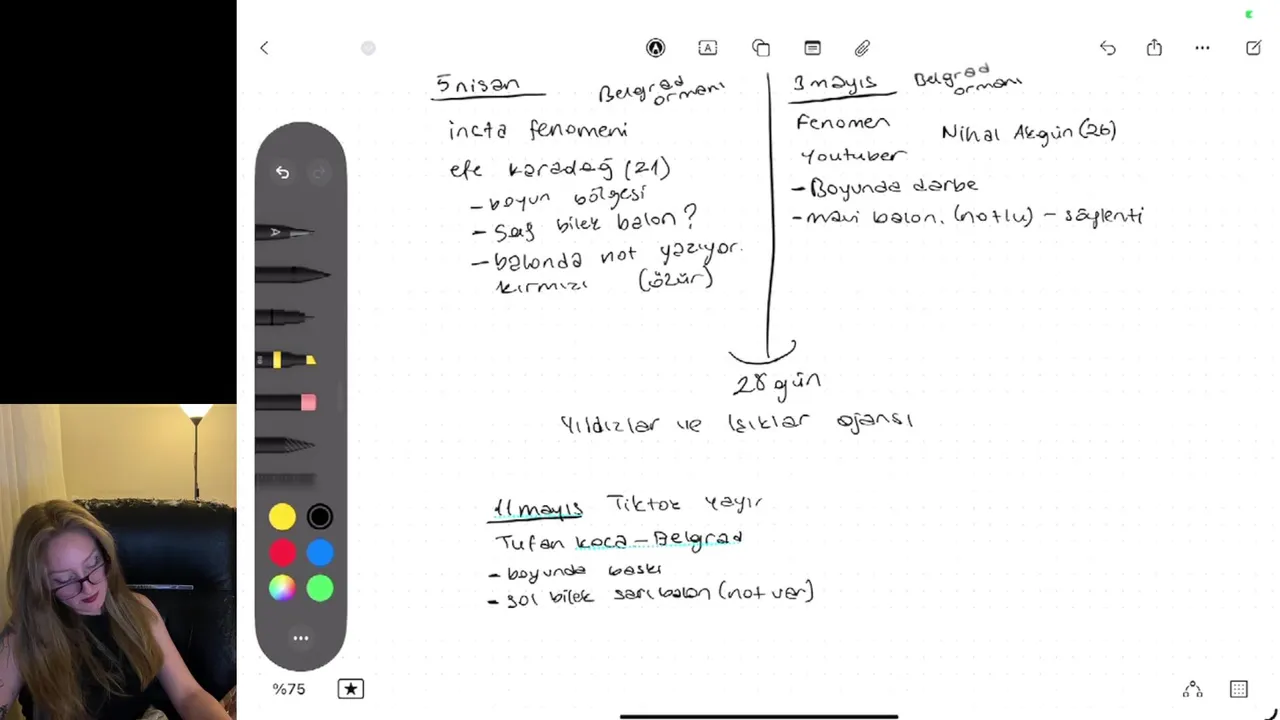 5 nisan Belgrad ormanı
insta fenomeni
efe karadağ (21)
- boyun bölgesi
- sağ bilek balon?
- balonda not yazıyor.
kırmızı (özür)
3 mayıs Belgrad ormanı
Fenomen Nihal Akgün (26)
Youtuber
- Boyunda darbe
- mavi balon. (notlu) - söylenti
28 gün
Yıldızlar ve Işıklar ajansı
11 mayıs Tiktok yayın
Tufan koca - Belgrad
- boyunda baskı
- sol bilek sarı balon (not var)
%75